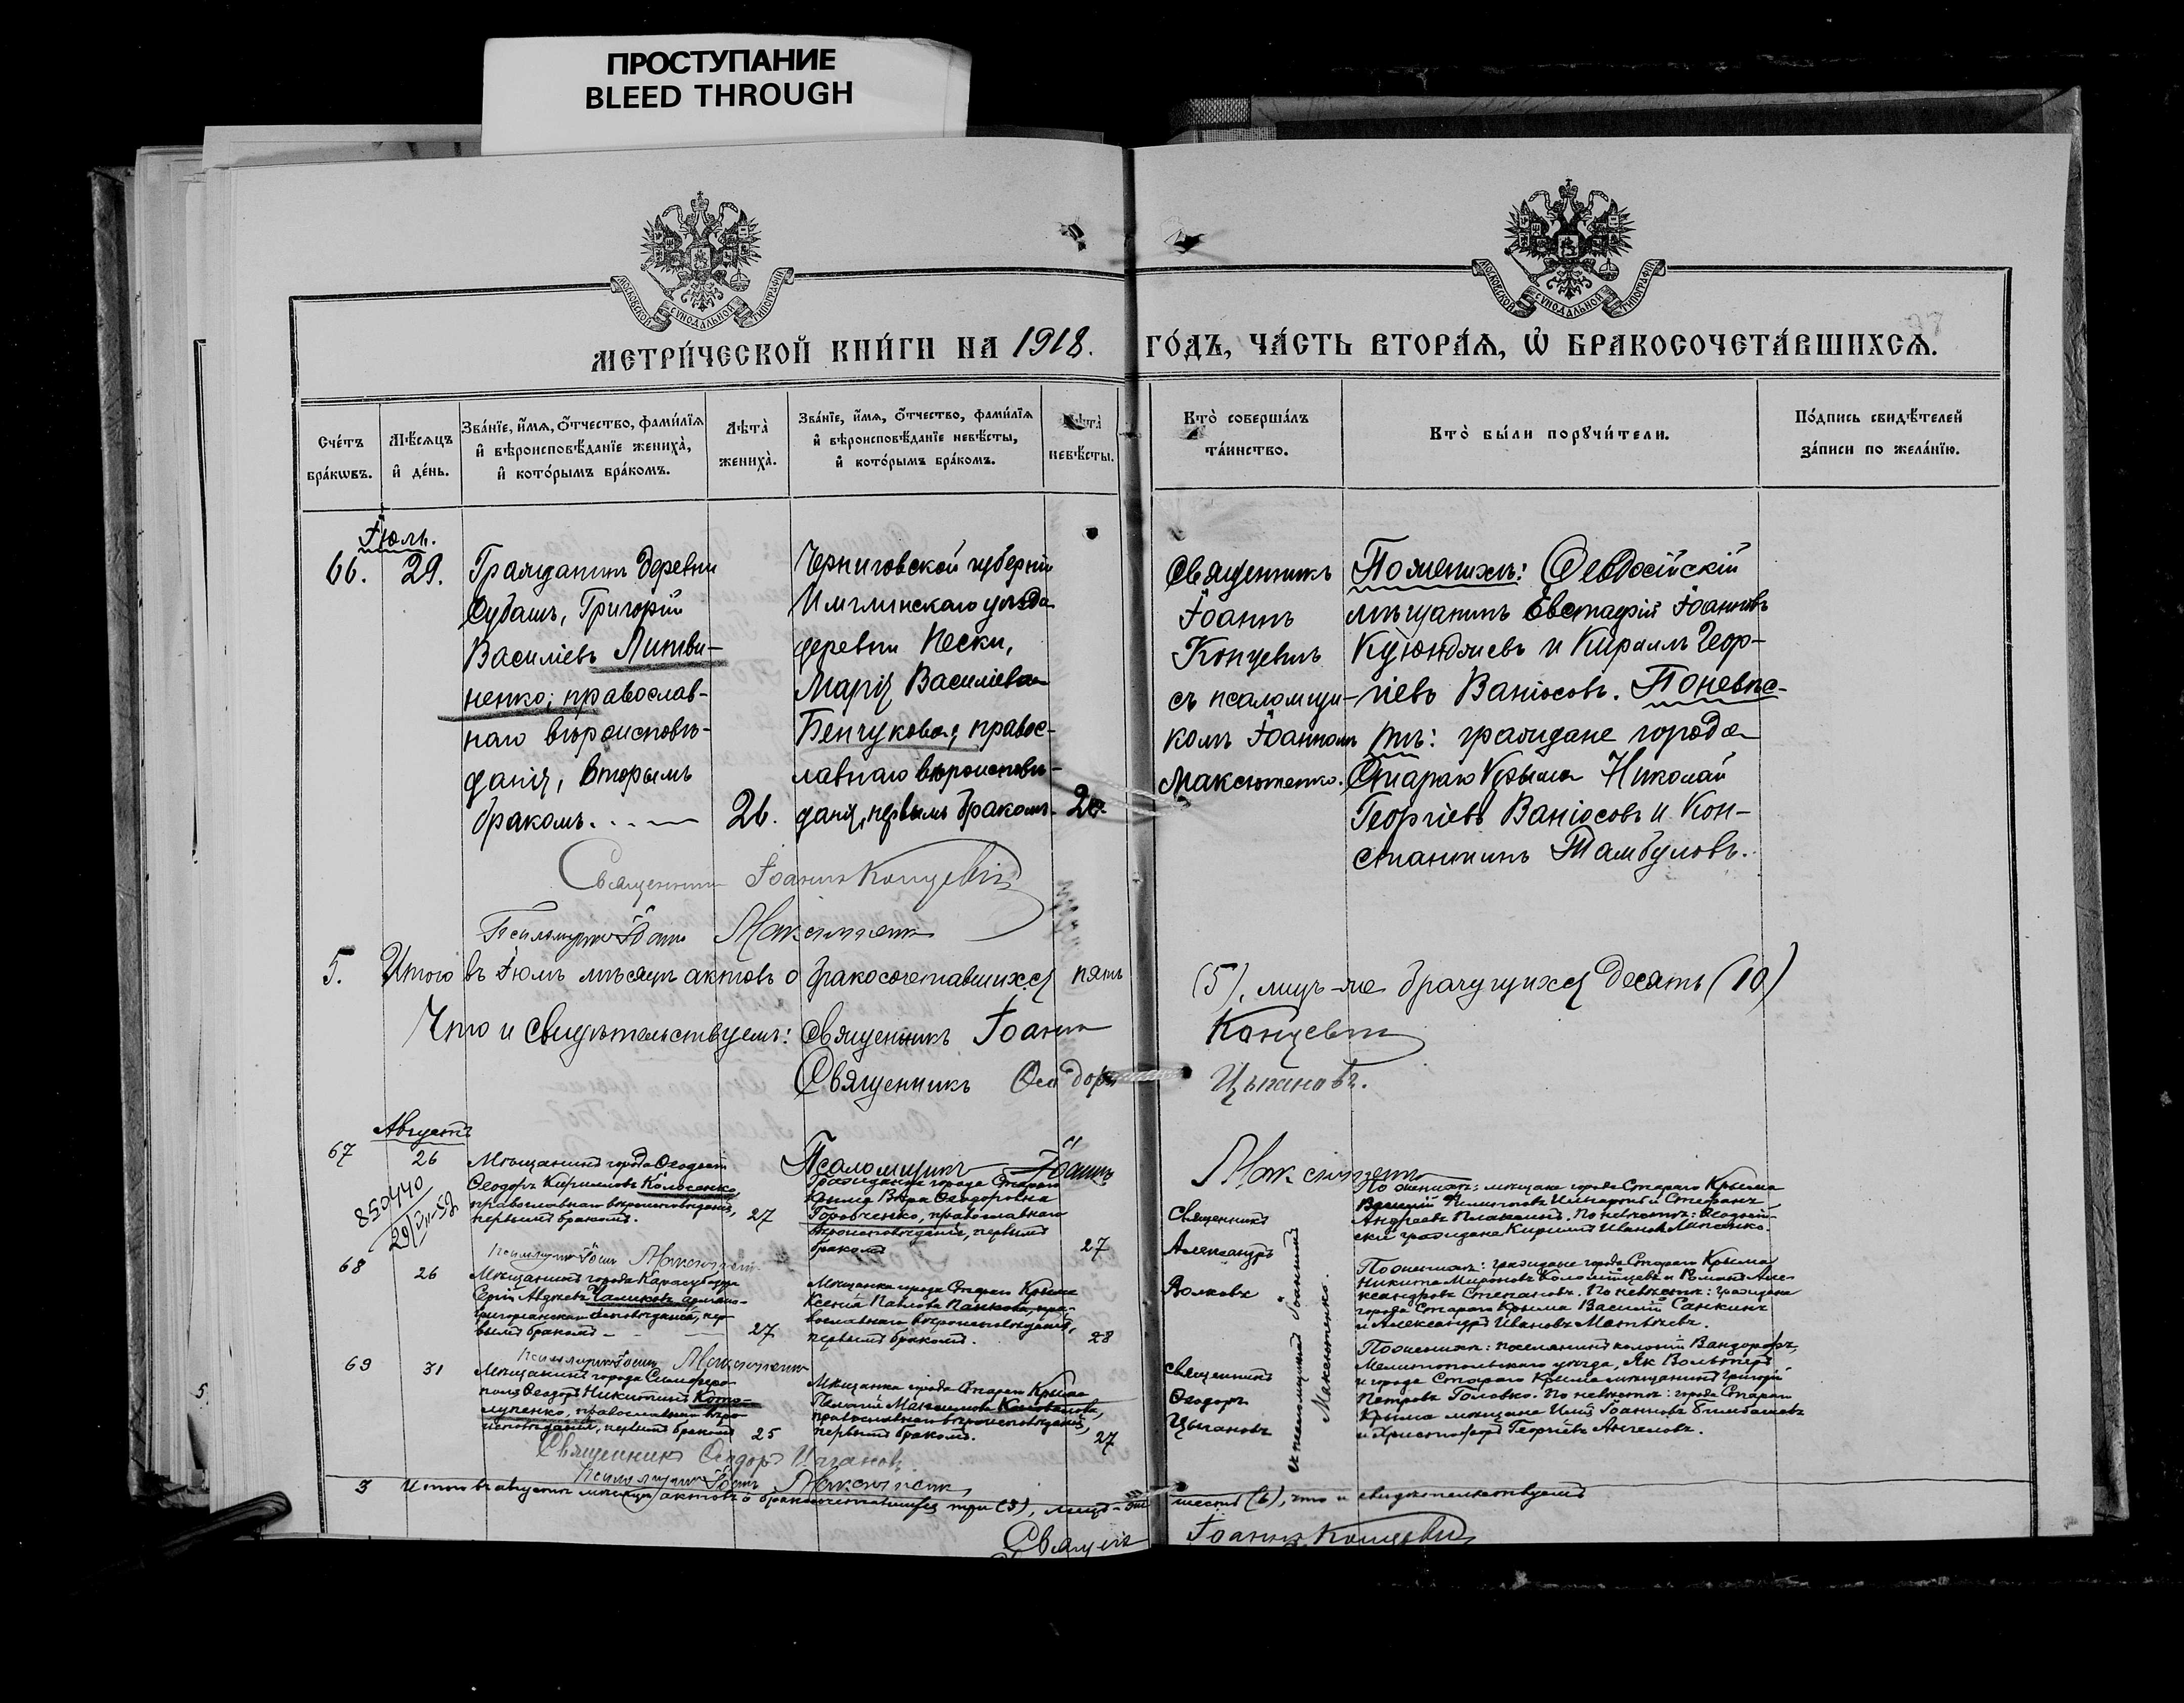 ПРОСТУПАНИЕ
BLEED THROUGH
МОСКОВСКОЙ СѴНОДАЛЬНОЙ ТИПОГРАФІИ
МОСКОВСКОЙ СѴНОДАЛЬНОЙ ТИПОГРАФІИ
МЕТРИ́ЧЕСКОЙ КНИ́ГИ НА 1918.
ГО́ДЪ, ЧА́СТЬ ВТОРА́Ѧ, Ѡ҆ БРАКОСОЧЕТА́ВШИХСѦ.
Сче́тъ бра́кѡвъ.
Мѣ́сѧцъ и҆ де́нь.
Зва́нїе, и҆́мѧ, ѻ҆́тчество, фами́лїѧ
и҆ вѣроисповѣ́данїе жениха̀,
и҆ кото́рымъ бра́комъ.
Лѣ́та̀ жениха̀.
Зва́нїе, и҆́мѧ, ѻ҆́тчество, фами́лїѧ
и҆ вѣроисповѣ́данїе невѣ́сты,
и҆ кото́рымъ бра́комъ.
невѣ́сты.
Кто̀ соверша́лъ
та́инство.
Кто̀ бы́ли порꙋчи́тели.
По́дпись свидѣ́телей
за́писи по жела́нїю.
Іюль.
66. 29.
Гражданинъ деревни
Субашъ, Григорій
Василіевъ Литви-
ненко; православ-
наго вѣроисповѣ-
данія, вторымъ
бракомъ.
26.
Черниговской губерніи
уѣзда
деревни Пески,
Марія Василіева
Бенчукова; правос-
лавнаго вѣроисповѣ-
данія, первымъ бракомъ.
20.
Священникъ
Іоаннъ
Концевичъ
съ псаломщи-
комъ Іоанномъ
Максютенко.
По женихѣ: Ѳеодосійскій
мѣщанинъ Евстафій Іоанновъ
Куюнджіевъ и Кириллъ Геор-
гіевъ Ваніосовъ. По невѣс-
тѣ: граждане города
Стараго Крыма Николай
Георгіевъ Ваніосовъ и Кон-
стантинъ Тамбуловъ.
Священникъ Іоаннъ Концевичъ
Псаломщикъ Іоаннъ Максютенко
5. Итого въ Іюлѣ мѣсяцѣ актовъ о бракосочетавшихся пять
(5), лицъ-же брачущихся десять (10)
Что и свидѣтельствуемъ: Священникъ Іоаннъ
Концевичъ
Священникъ Ѳеодоръ
Цыгановъ.
Псаломщикъ Іоаннъ
Максютенко
Августъ
67 26
Мѣщанинъ города Ѳеодосіи
Ѳеодоръ Кирилловъ Колосенко,
православнаго вѣроисповѣданія,
первымъ бракомъ.
27
Гражданка города Стараго
Крыма Вѣра Ѳеодоровна
Горовченко, православнаго
вѣроисповѣданія, первымъ
бракомъ
27
Священникъ
Александръ
Волковъ
По женихѣ: мѣщане города Стараго Крыма
и Стефанъ
Андреевъ Плакинъ. По невѣстѣ: Ѳеодосій-
скій гражданинъ Кириллъ Ивановъ
Псаломщикъ Іоаннъ Максютенко
68 26
Мѣщанинъ города Карасубазара
Сергій Авджевъ Чаликовъ, армяно-
григоріанскаго исповѣданія, пер-
вымъ бракомъ
27
Мѣщанка города Стараго Крыма
Ксенія Павлова Панкова, пра-
вославнаго вѣроисповѣданія,
первымъ бракомъ.
28
По женихѣ: граждане города Стараго Крыма
Никита Мироновъ Коломійцевъ и Романъ Але-
ксандровъ Степановъ. По невѣстѣ: граждане
города Стараго Крыма Василій Санкинъ
и Александръ Ивановъ Матвѣевъ.
съ псаломщикомъ Іоанномъ
Максютенко.
Псаломщикъ Іоаннъ Максютенко
69 31
Мѣщанинъ города Симферо-
поля Ѳеодоръ Никитинъ Кото-
лупенко, православнаго вѣро-
исповѣданія, первымъ бракомъ
25
Мѣщанка города Стараго Крыма
Пелагія Максимова Коновалова,
православнаго вѣроисповѣданія,
первымъ бракомъ.
27
Священникъ
Ѳеодоръ
Цыгановъ
По женихѣ: поселянинъ колоніи Вандорфъ,
Мелитопольскаго уѣзда, Як Вольтеръ
и города Стараго Крыма мѣщанинъ Григорій
Петровъ Головко. По невѣстѣ: города Стараго
Крыма мѣщане Илія Іоанновъ
и Христофоръ Георгіевъ Ангеловъ.
Священникъ Ѳеодоръ Цыгановъ
Псаломщикъ Іоаннъ Максютенко
3 Итого въ августѣ мѣсяцѣ актовъ о бракосочетавшихся три (3), лицъ
шесть (6), что и свидѣтельствуемъ
Іоаннъ Концевичъ